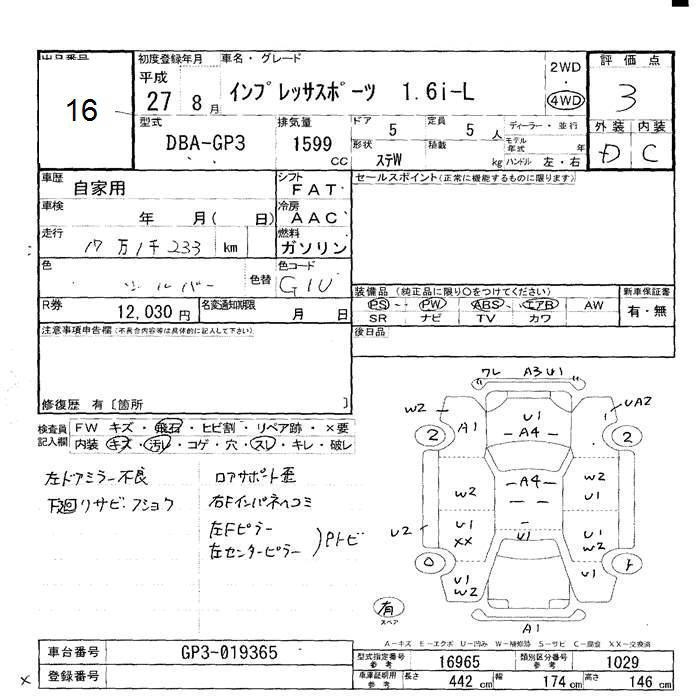 出品番号
16
初度登録年月
平成
27 8月
車名・グレード
インプレッサスポーツ 1.6i-L
2WD
4WD
評価点
3
外装 内装
D C
型式
DBA-GP3
排気量
1599
CC
ドア
5
定員
5 人
形状
ステW
積載
kg
ディーラー・並行
モデル年式 年
ハンドル 左・右
車歴
自家用
シフト
FAT
車検
年 月( 日)
冷房
AAC
走行
17万1千233 km
燃料
ガソリン
色
シルバー
色替
色コード
G1U
R券
12,030 円
名変通知期限
月 日
セールスポイント(正常に機能するものに限ります)
装備品 (純正品に限り○をつけてください)
PS PW ABS エアB AW
SR ナビ TV カワ
新車保証書
有・無
後日品
注意事項申告欄(不具合内容等は具体的に記入して下さい)
修復歴 有〔箇所 〕
検査員記入欄
FW キズ・飛石・ヒビ割・リペア跡・×要
内装・キズ・汚レ・コゲ・穴・スレ・キレ・破レ
左ドアミラー不良
下廻リサビ・フショク
ロアサポート歪
右Fインパネヘコミ
左Fピラー
左センターピラー
)Pトビ
ワレ A3 U1
W2 A1 U1 UA2
2 A4 2
A4
W2 W2 U1
U2 U1 XX U1 U1 W2
U1 W2 U1
有
スペア
A1
A-キズ E-エクボ U-凹み W-補修跡 S-サビ C-腐食 XX-交換済
車台番号
GP3-019365
登録番号
型式指定番号
参考
16965
類別区分番号
参考
1029
車庫証明用
参考
長さ 442 cm 幅 174 cm 高さ 146 cm